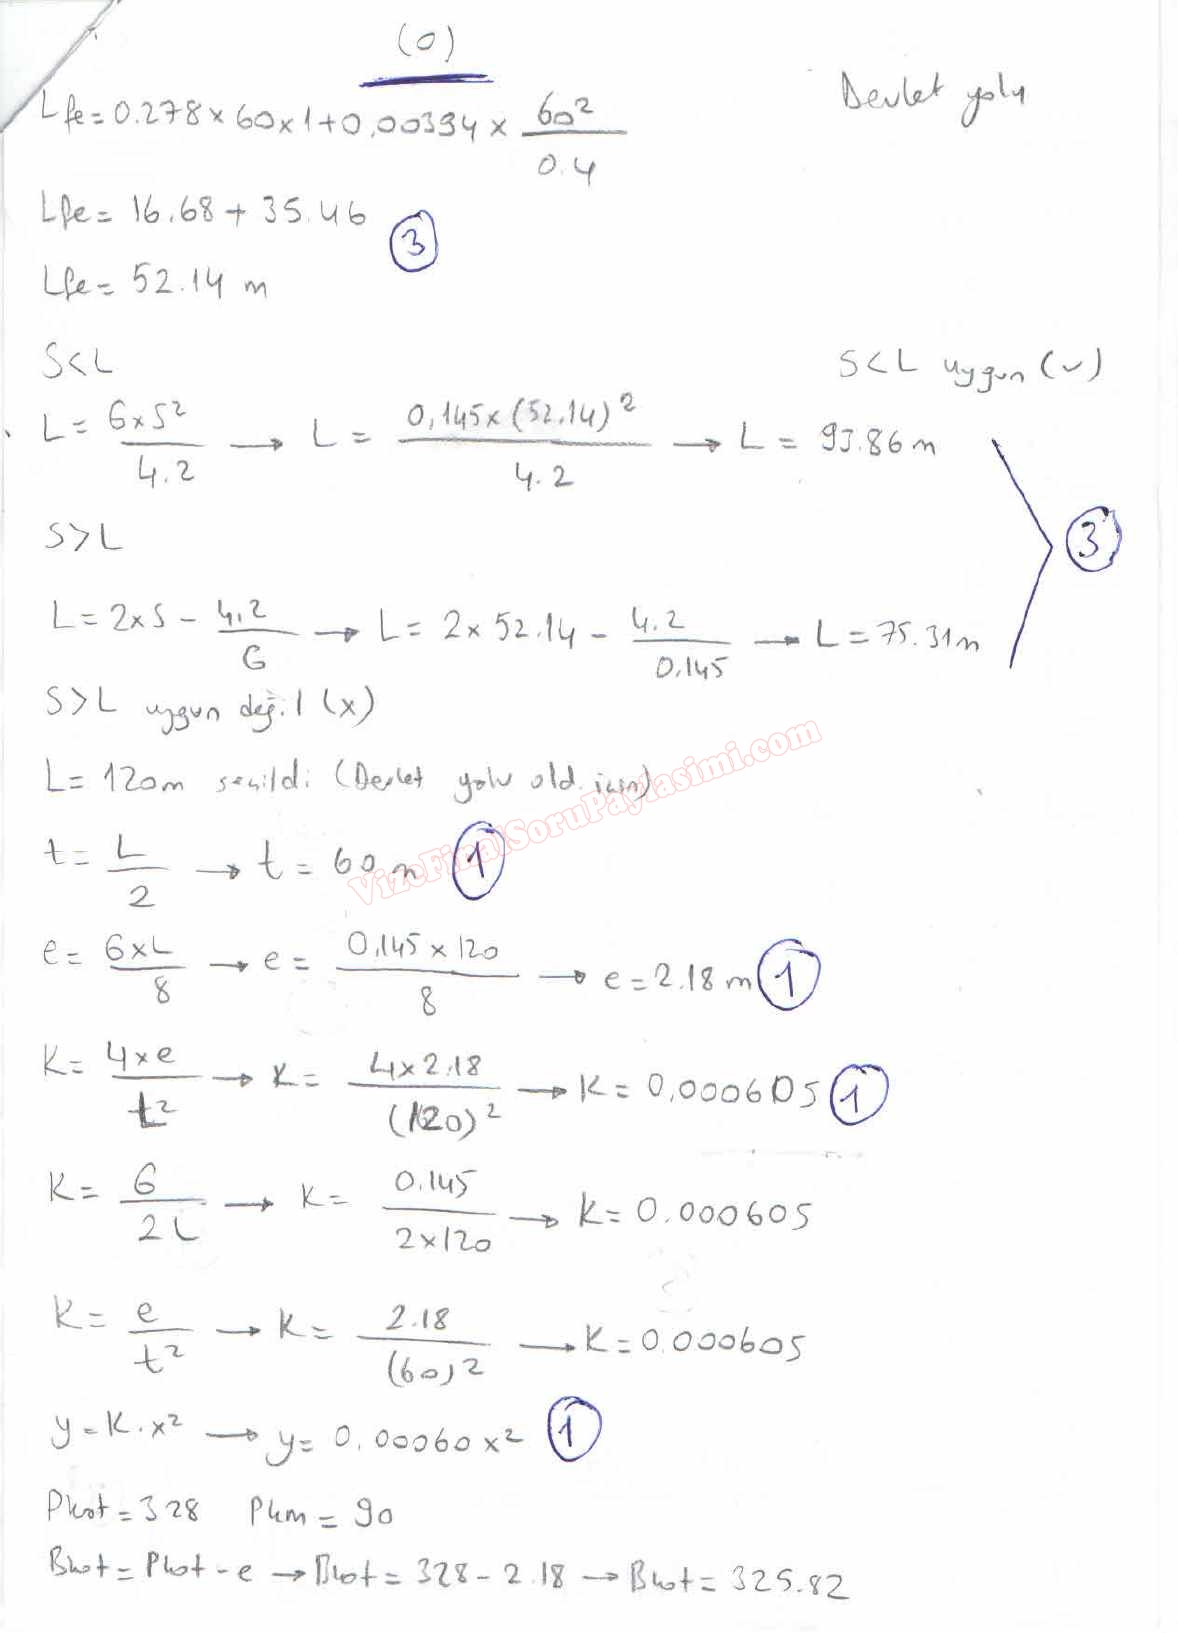 (0)
Devlet yolu
Lfe = 0.278 x 60 x 1 + 0,00394 x 60² / 0.4
Lfe = 16.68 + 35.46
③
Lfe = 52.14 m
S<L
S<L uygun (✓)
L = GxS² / 4.2 → L = 0,145x(52.14)² / 4.2 → L = 93.86m
③
S>L
L = 2xS - 4.2 / G → L = 2x 52.14 - 4.2 / 0.145 → L = 75.31m
S>L uygun değil (x)
L = 120m seçildi (Devlet yolu old. için)
t = L / 2 → t = 60 m ①
e = GxL / 8 → e = 0,145 x 120 / 8 → e = 2.18 m ①
K = 4xe / t² → K = 4x2.18 / (120)² → K = 0,000605 ①
K = G / 2L → K = 0.145 / 2x120 → K = 0.000605
K = e / t² → K = 2.18 / (60)² → K = 0.000605
y = K.x² → y = 0,00060x² ①
Pkot = 328 Pkm = 90
Bkot = Pkot - e → Bkot = 328 - 2.18 → Bkot = 325.82
VizeFinalSoruPaylasimi.com